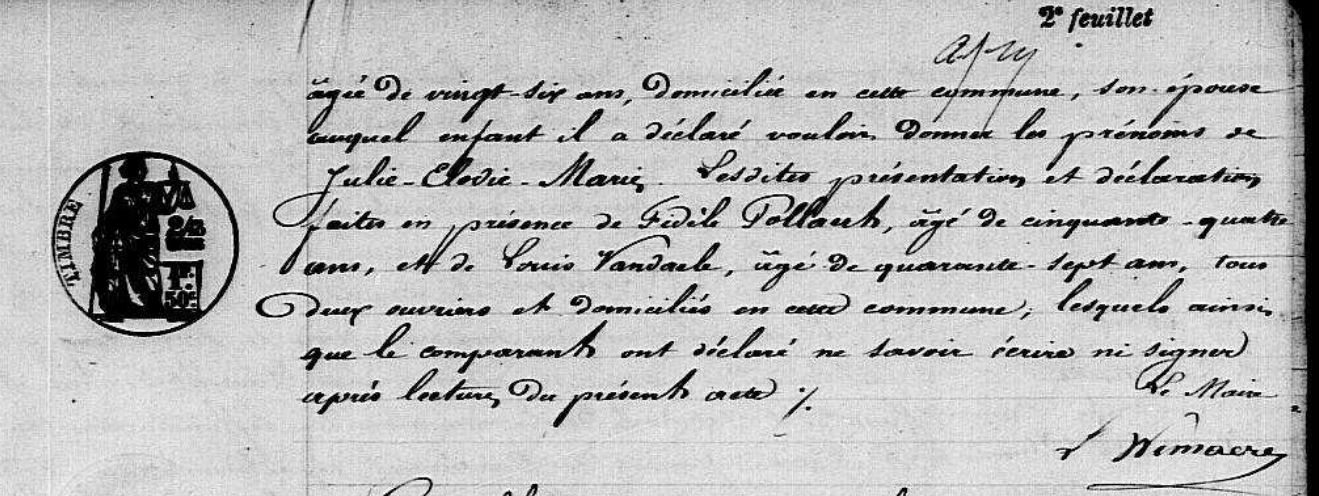 2e feuillet
âgée de vingt-six ans, domiciliée en cette commune, son épouse
auquel enfant il a déclaré vouloir donner les prénoms de
Julie-Elodie-Marie. Lesdites présentation et déclaration
faites en présence de Fidèle Pollault, âgé de cinquante-quatre
ans, et de Louis Vandaele, âgé de quarante-sept ans, tous
deux ouvriers et domiciliés en cette commune; lesquels ainsi
que le comparant ont déclaré ne savoir écrire ni signer
après lecture du présent acte ./.
Le Maire
TIMBRE